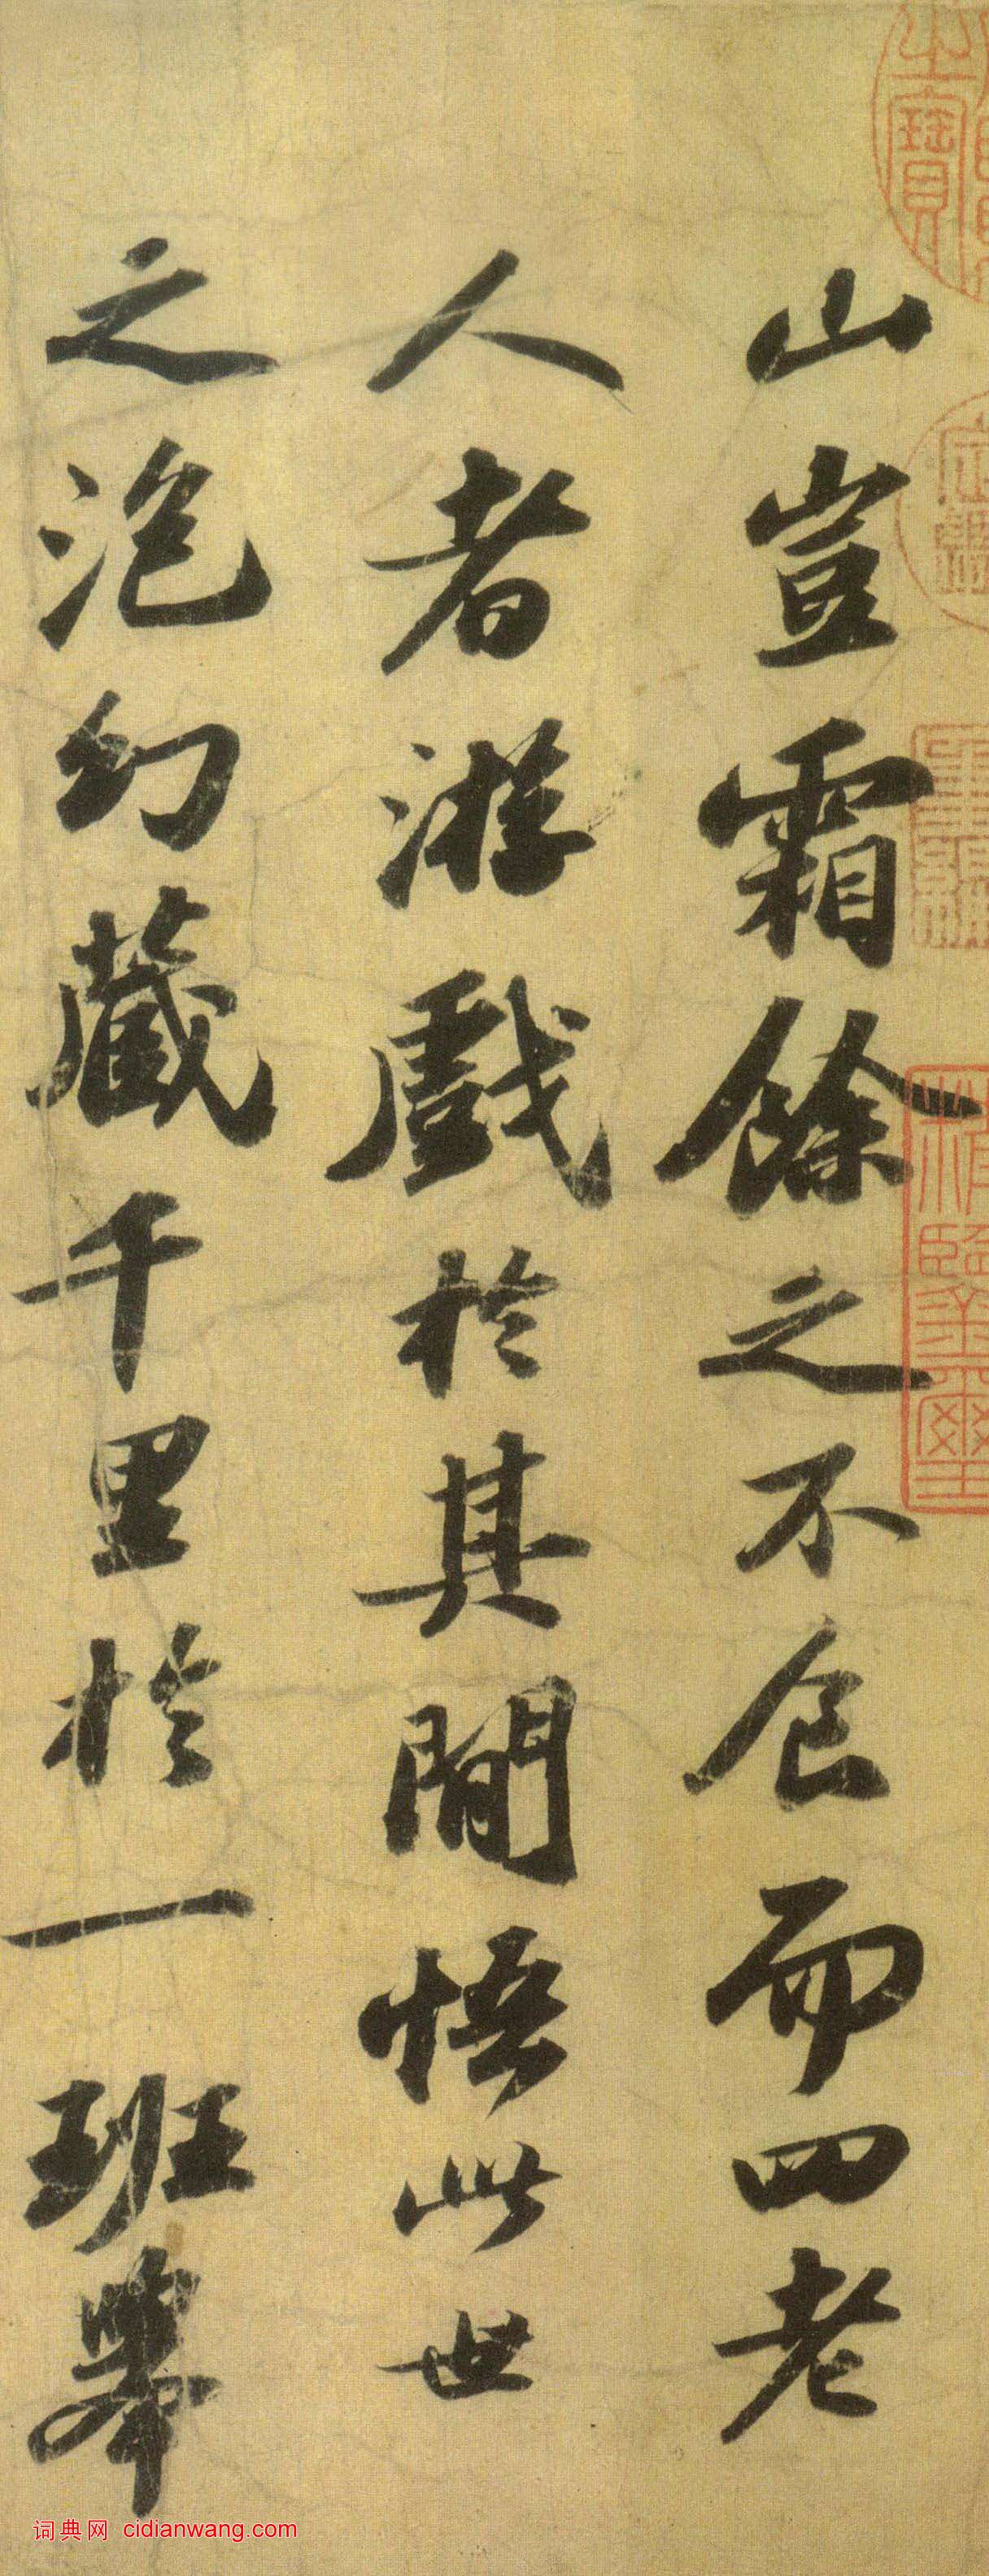 山豈霜餘之不食而四老
人者游戲於其間悟此世
之泡幻藏千里於一班舉
词典网 cidianwang.com